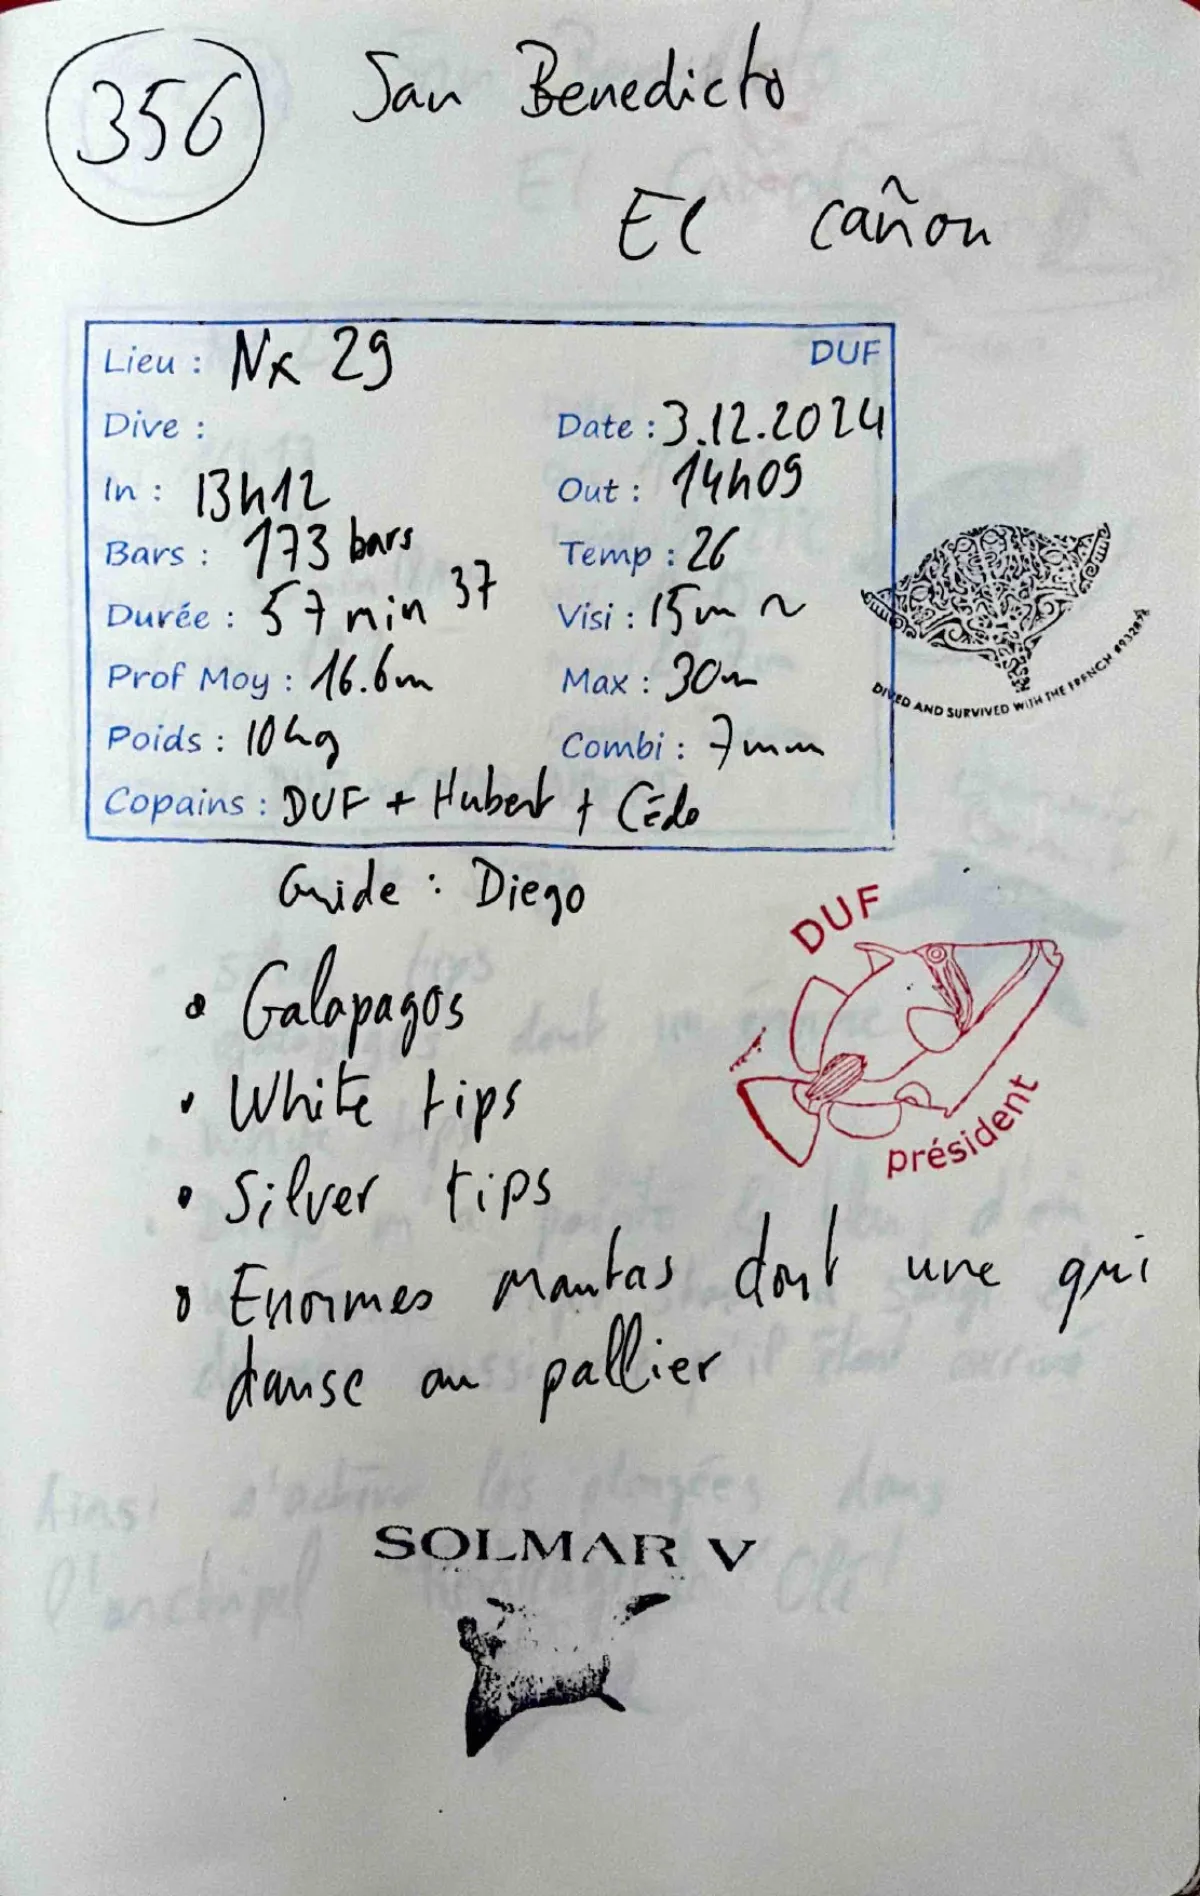 356
San Benedicto
El cañon
Lieu : Nx 29 DUF
Dive : Date : 3.12.2024
In : 13h12 Out : 14h09
Bars : 173 bars Temp : 26
Durée : 57 min 37 Visi : 15m ~
Prof Moy : 16.6m Max : 30m
Poids : 10kg Combi : 7mm
Copains : DUF + Hubert + Cédo
DIVED AND SURVIVED WITH THE FRENCH
Guide : Diego
DUF
président
• Galapagos
• White tips
• Silver tips
• Enormes mantas dont une qui
danse au pallier
SOLMAR V